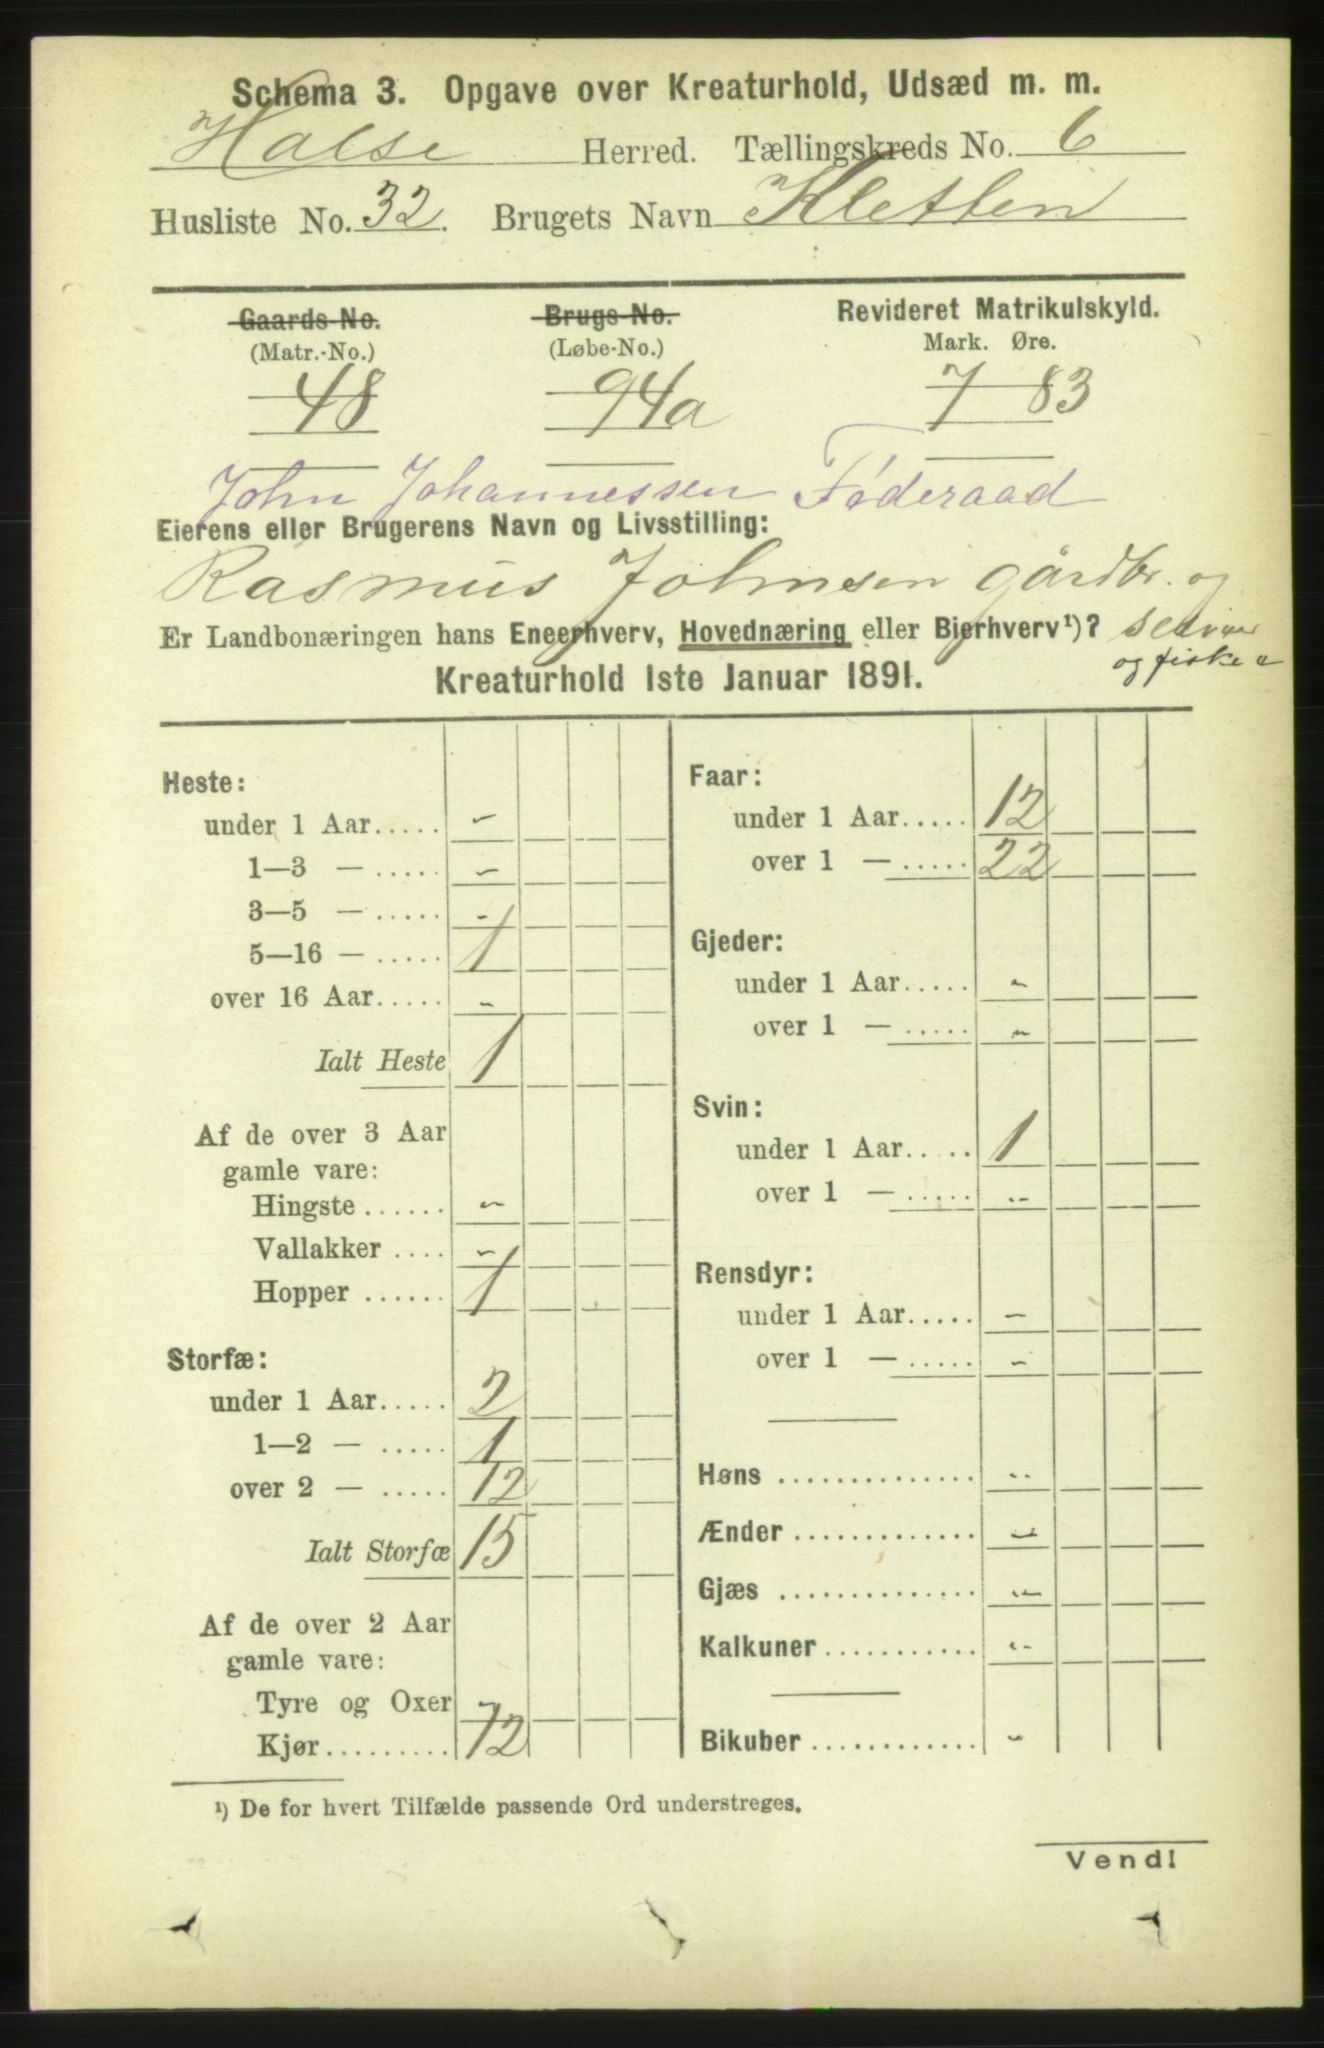 Schema 3. Opgave over Kreaturhold, Udsæd m. m.
Halse Herred. Tællingskreds No. 6
Husliste No. 32. Brugets Navn Kletten
Gaards-No. Brugs-No. Revideret Matrikulskyld.
(Matr.-No.) (Løbe-No.) Mark. Øre.
48 94a 7 83
John Johannessen Føderaad
Eierens eller Brugerens Navn og Livsstilling:
Rasmus Johnsen gårdbr. og
Er Landbonæringen hans Eneerhverv, Hovednæring eller Bierhverv¹)?
og fiske
Kreaturhold 1ste Januar 1891.
Heste:
under 1 Aar..... -
1—3 — ..... -
3—5 — ..... -
5—16 — ..... 1
over 16 Aar..... -
Ialt Heste 1
Af de over 3 Aar
gamle vare:
Hingste ...... -
Vallakker .... -
Hopper ...... 1
Storfæ:
under 1 Aar..... 2
1—2 — ..... 1
over 2 — ..... 12
Ialt Storfæ 15
Af de over 2 Aar
gamle vare:
Tyre og Oxer
Kjør......... 12
Faar:
under 1 Aar..... 12
over 1 — ..... 22
Gjeder:
under 1 Aar..... -
over 1 — ..... -
Svin:
under 1 Aar..... 1
over 1 — ..... -
Rensdyr:
under 1 Aar..... -
over 1 — ..... -
Høns .............. -
Ænder ............. -
Gjæs .............. -
Kalkuner ........... -
Bikuber ............ -
¹) De for hvert Tilfælde passende Ord understreges.
Vend!